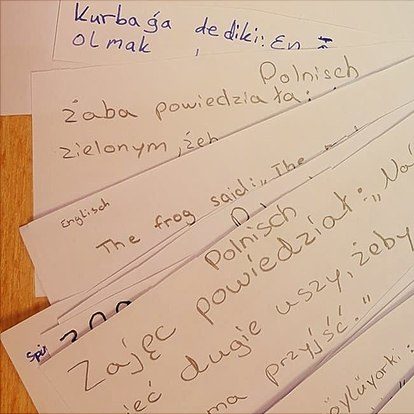 Kurbağa dediki: En
olmak
Polnisch
żaba powiedziała:
zielonym, żeb
Englisch
The frog said: „The
Polnisch
Zając powiedział: „Na
ieć dugie uszy, żeby
ma przyjść."
Spi
öylüyorki: